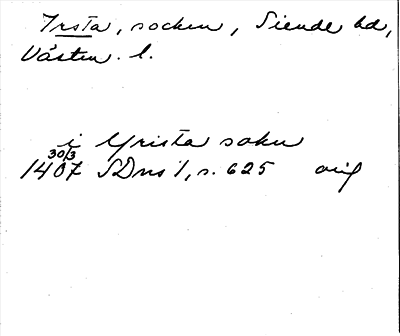 Irsta, socken, Siende hd,
Västm. l.
i Yrista sokn
30/3
1407 SDns 1, s. 625 orig